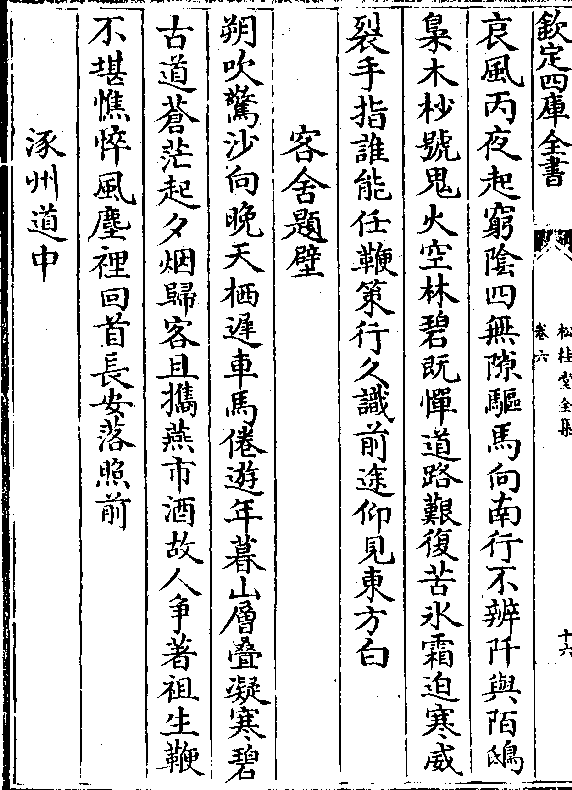 欽定四庫全書
松桂堂全集
卷六
十六
哀風丙夜起窮陰四無隙驅馬向南行不辨阡與陌鴟
梟木杪號鬼火空林碧既憚道路艱復苦氷霜迫寒威
裂手指誰能任鞭策行久識前途仰見東方白
客舍題壁
朔吹驚沙向晚天栖遲車馬倦遊年暮山層疊凝寒碧
古道蒼茫起夕烟歸客且攜燕市酒故人爭著祖生鞭
不堪憔悴風塵裡回首長安落照前
涿州道中